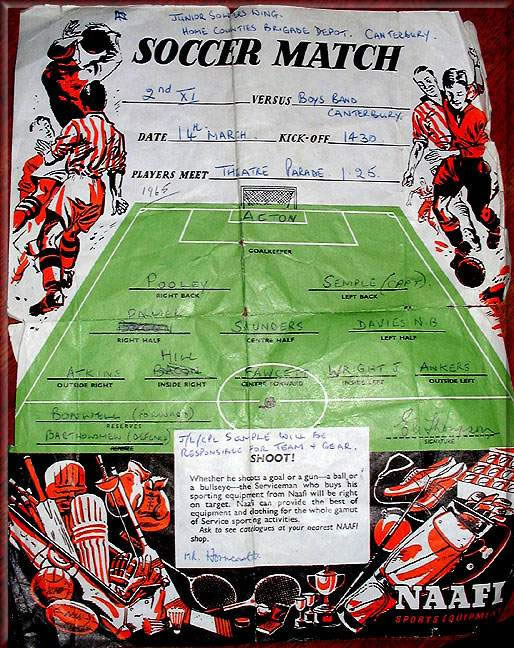 JUNIOR SOLDIERS WING.
HOME COUNTIES BRIGADE DEPOT. CANTERBURY.
SOCCER MATCH
2nd XI VERSUS BOYS BAND
CANTERBURY.
DATE 14th MARCH KICK-OFF 1430
PLAYERS MEET THEATRE PARADE 1.25.
1965
ACTON
GOALKEEPER
POOLEY SEMPLE (CAPT).
RIGHT BACK LEFT BACK
DANIEL
SAUNDERS DAVIES N.B
RIGHT HALF CENTRE HALF LEFT HALF
HILL
ATKINS BACON FAWCETT WRIGHT J ANKERS
OUTSIDE RIGHT INSIDE RIGHT CENTRE FORWARD INSIDE LEFT OUTSIDE LEFT
BONWELL (FORWARD)
RESERVES
BARTHOLOMEW (DEFENCE)
REFEREE
SIGNATURE
J/L/CPL SEMPLE WILL BE
RESPONSIBLE FOR TEAM + GEAR.
SHOOT!
Whether he shoots a goal or a gun—a ball or
a bullseye—the Serviceman who buys his
sporting equipment from Naafi will be right
on target. Naafi can provide the best of
equipment and clothing for the whole gamut
of Service sporting activities.
Ask to see catalogues at your nearest NAAFI
shop.
MR.
NAAFI
SPORTS EQUIPMENT